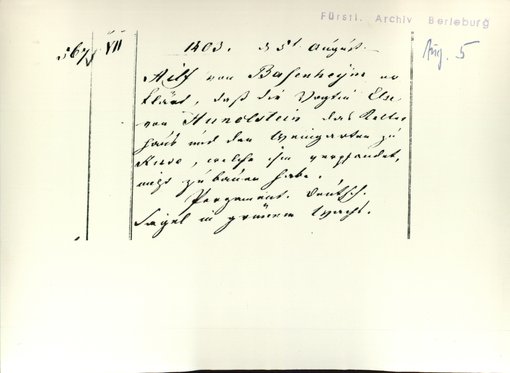 Fürstl. Archiv Berleburg
Aug. 5
567/8 VII
1403. d 5t August.
Ailf von Bassenheym er
klärt, daß die Vogtin Else
von Hunolstein das Kelter
haus und den Weingarten zu
, welche ihm verpfändet,
nicht zu bauen habe.
Pergament. Deutsch.
Siegel in grünem Wachs.